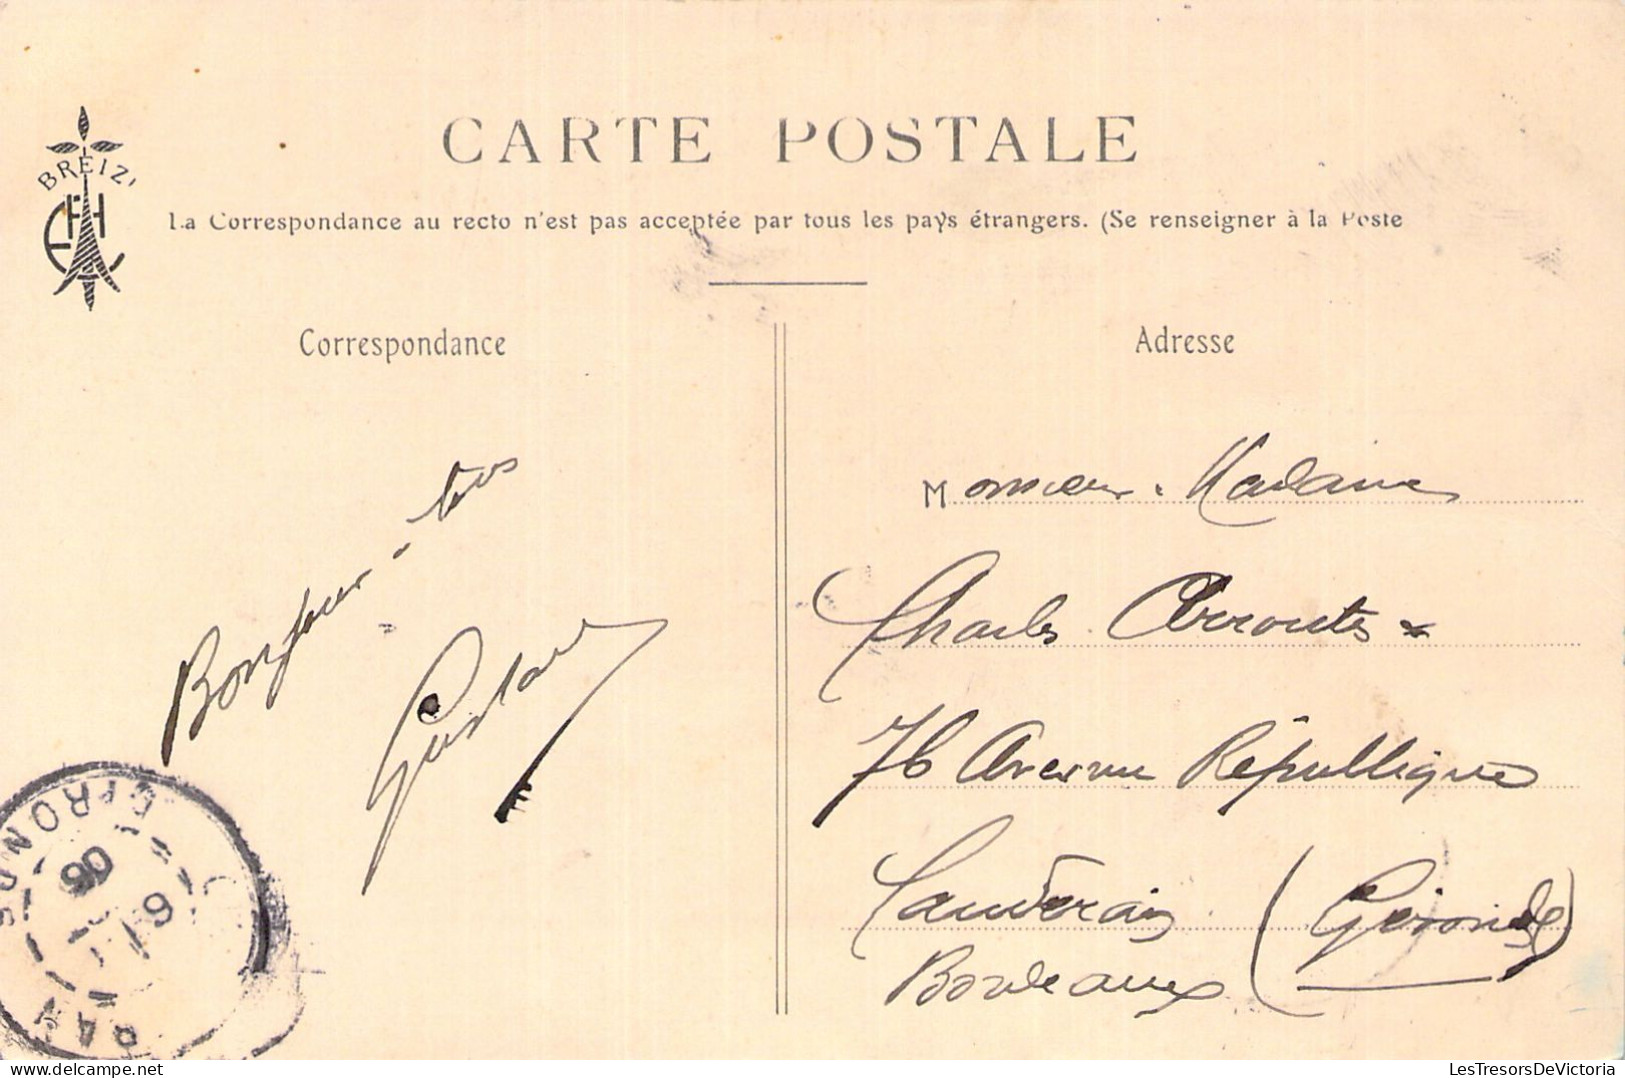 CARTE POSTALE
BREIZ
La Correspondance au recto n'est pas acceptée par tous les pays étrangers. (Se renseigner à la Poste
Correspondance
Bonjour - tous
Gustave
GIRONDE
06
Adresse
Monsieur. Madame
Charles
76 Avenue République
Cauderan (Gironde)
Bordeaux
LesTresorsDeVictoria